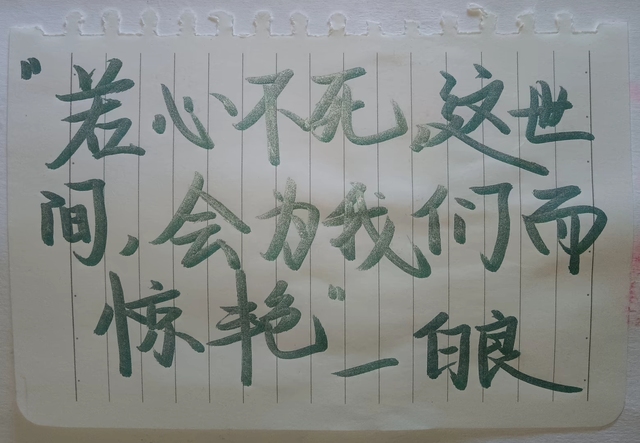 “若心不死，这世
间，会为我们而
惊艳”一白良